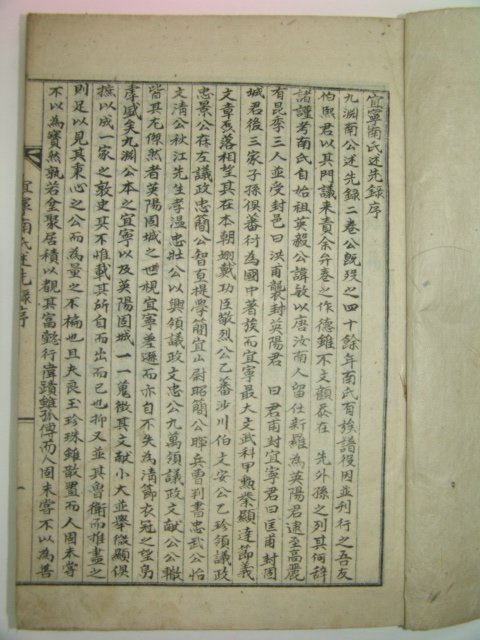 宜寧南氏述先錄序
九淵南公述先錄二卷公旣歿之四十餘年南氏有族譜役因並刊行之吾友
伯熙君以其門議來責余弁卷之作德雖不文顧忝在 先外孫之列其何辭
諸謹考南氏自始祖英毅公諱敏以唐汝南人留仕新羅爲英陽君逮至高麗
有昆季三人並受封邑曰洪甫襲封英陽君 曰君甫封宜寧君曰匡甫封固
城君後三家子孫俱蕃衍爲國中著族而宜寧最大文武科甲勲業顯達節義
文章磊落相望其在本朝翊戴功臣敬烈公乙蕃沙川伯文安公乙珍領議政
忠景公在左議政忠簡公智直提學簡宜山尉昭簡公暉兵曹判書忠武公怡
文淸公秋江先生孝溫忠壯公以興領議政文忠公九萬領議政文獻公公轍
皆其尤傑然者英陽固城之世視宜寧差遜而亦自不失爲淸節衣冠之望
虖盛矣九淵公本之宜寧以及英陽固城一一蒐徵其文献小大並擧微顯俱
摭以成一家之敦史其不惟載其所自而出而已也抑又並其魯衛而惟盡之
則足以見其秉心之公而爲量之不褊也且夫良玉珍珠雖散置而人固未嘗
不以爲寶然孰若堃聚居積以觀其富懿行偉蹟雖孤傳而人固未嘗不以爲善
宜寧南氏述先錄序